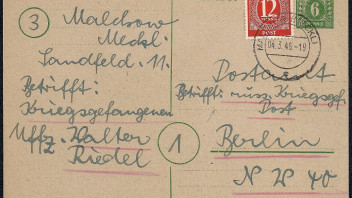 3 Malchow
Meckl.
Sandfeld. 11.
Betrifft:
Kriegsgefangenen
Uffz. Walter
Riedel
12
POST
6
PFENNIG
04.3.46.-19
1
Postamt
Betrifft: russ. Kriegsgef.
Post
Berlin
N W 40